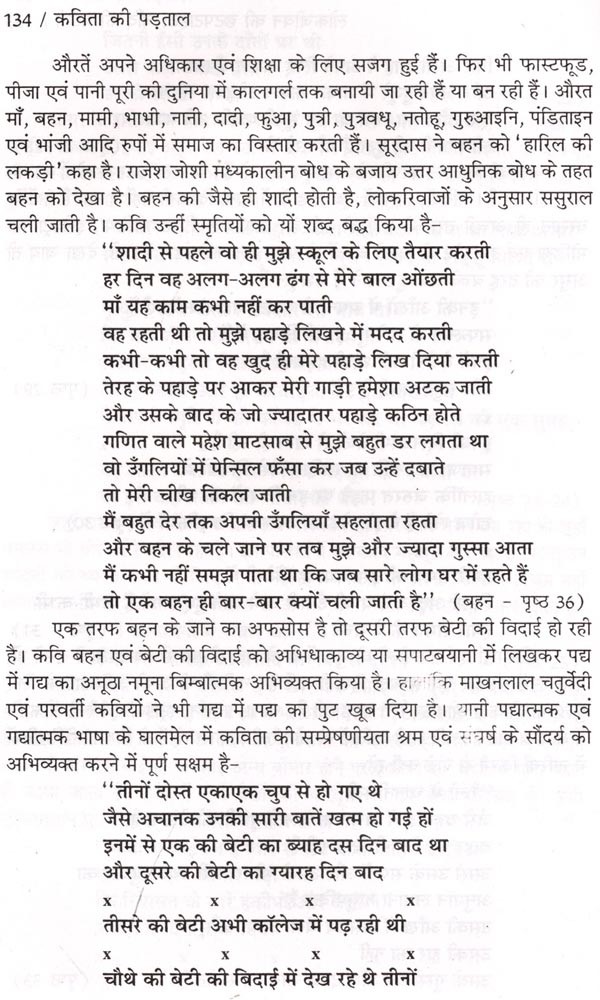 134 / कविता की पड़ताल
औरतें अपने अधिकार एवं शिक्षा के लिए सजग हुई हैं। फिर भी फास्टफूड,
पीजा एवं पानी पूरी की दुनिया में कालगर्ल तक बनायी जा रही हैं या बन रही हैं। औरत
माँ, बहन, मामी, भाभी, नानी, दादी, फूआ, पुत्री, पुत्रवधू, नतोहू, गुरुआइनि, पंडिताइन
एवं भांजी आदि रुपों में समाज का विस्तार करती हैं। सूरदास ने बहन को ‘हारिल की
लकड़ी’ कहा है। राजेश जोशी मध्यकालीन बोध के बजाय उत्तर आधुनिक बोध के तहत
बहन को देखा है। बहन की जैसे ही शादी होती है, लोकरिवाजों के अनुसार ससुराल
चली जाती है। कवि उन्हीं स्मृतियों को यों शब्द बद्ध किया है–
‘‘शादी से पहले वो ही मुझे स्कूल के लिए तैयार करती
हर दिन वह अलग-अलग ढंग से मेरे बाल ओंछती
माँ यह काम कभी नहीं कर पाती
वह रहती थी तो मुझे पहाड़े लिखने में मदद करती
कभी-कभी तो वह खुद ही मेरे पहाड़े लिख दिया करती
तेरह के पहाड़े पर आकर मेरी गाड़ी हमेशा अटक जाती
और उसके बाद के जो ज्यादातर पहाड़े कठिन होते
गणित वाले महेश माटसाब से मुझे बहुत डर लगता था
वो उँगलियों में पेन्सिल फँसा कर जब उन्हें दबाते
तो मेरी चीख निकल जाती
मैं बहुत देर तक अपनी उँगलियाँ सहलाता रहता
और बहन के चले जाने पर तब मुझे और ज्यादा गुस्सा आता
मैं कभी नहीं समझ पाता था कि जब सारे लोग घर में रहते हैं
तो एक बहन ही बार-बार क्यों चली जाती है’’ (बहन - पृष्ठ 36)
एक तरफ बहन के जाने का अफसोस है तो दूसरी तरफ बेटी की विदाई हो रही
है। कवि बहन एवं बेटी की विदाई को अभिधाकाव्य या सपाटबयानी में लिखकर पद्य
में गद्य का अनूठा नमूना बिम्बोत्मक अभिव्यक्त किया है। हालांकि माखनलाल चतुर्वेदी
एवं परवर्ती कवियों ने भी गद्य में पद्य का पुट खूब दिया है। यानी पद्यात्मक एवं
गद्यात्मक भाषा के घालमेल में कविता की सम्प्रेषणीयता श्रम एवं संघर्ष के सौंदर्य को
अभिव्यक्त करने में पूर्ण सक्षम है–
‘‘तीनों दोस्त एकाएक चुप से हो गए थे
जैसे अचानक उनकी सारी बातें खत्म हो गई हों
इनमें से एक की बेटी का ब्याह दस दिन बाद था
और दूसरे की बेटी का ग्यारह दिन बाद
x x x x
तीसरे की बेटी अभी कॉलेज में पढ़ रही थी
x x x x
चौथे की बेटी की बिदाई में देख रहे थे तीनों